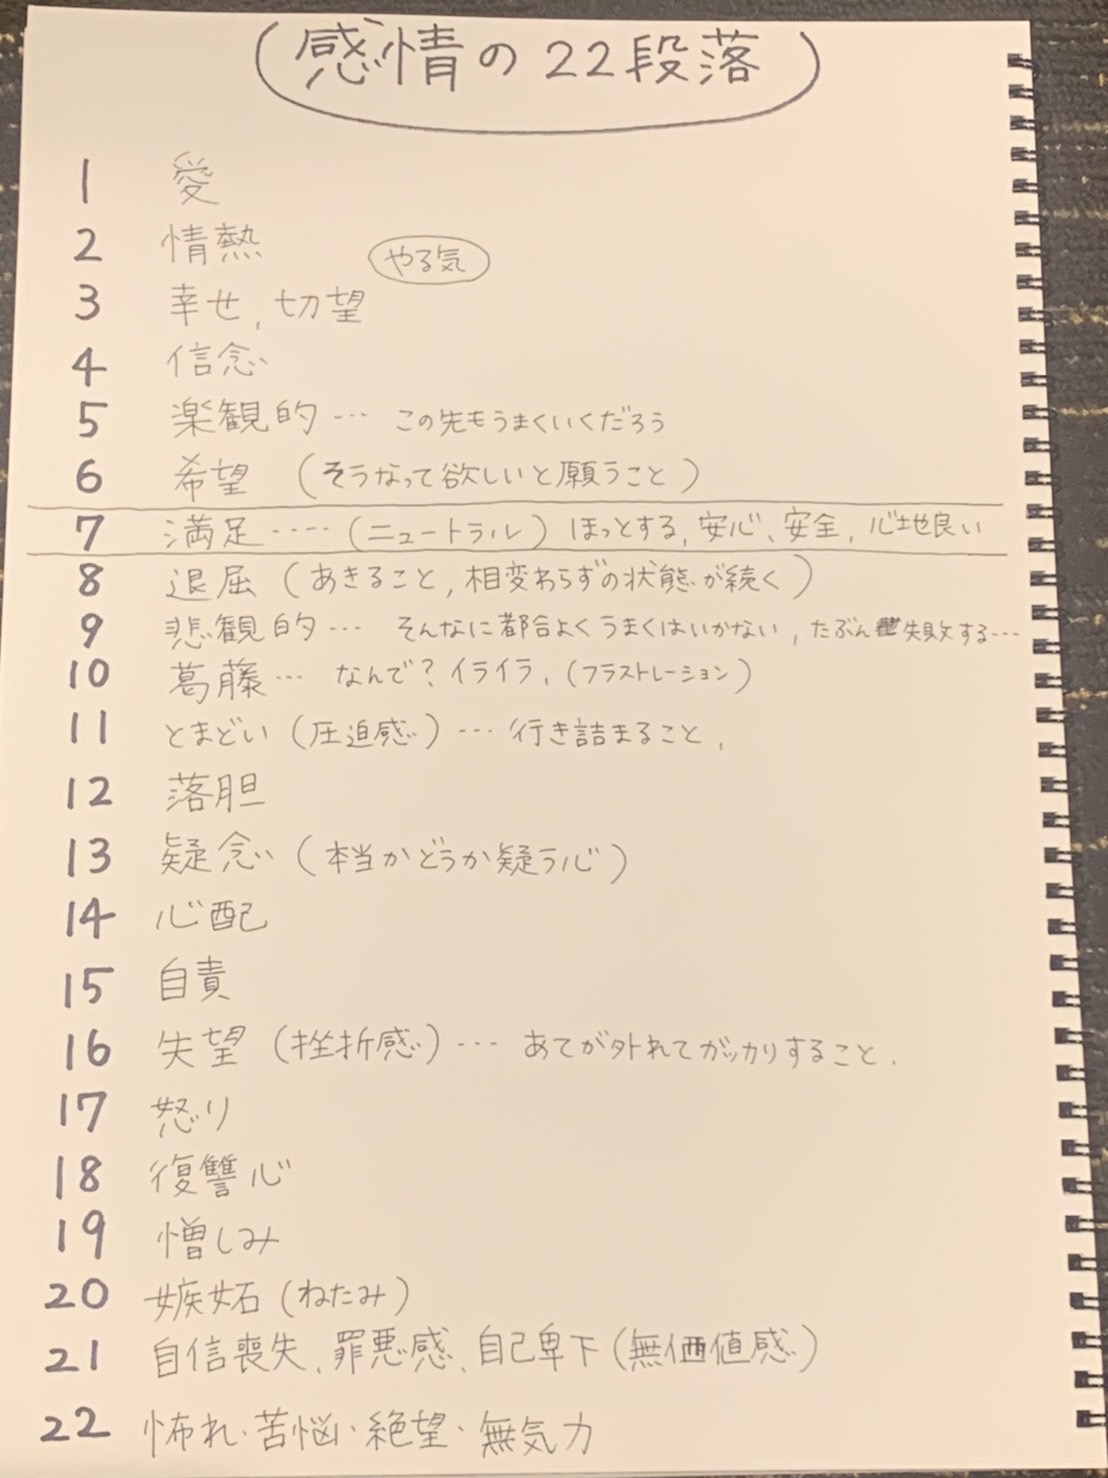 感情の22段落
1 愛
2 情熱
やる気
3 幸せ, 切望
4 信念
5 楽観的… この先もうまくいくだろう
6 希望 (そうなって欲しいと願うこと)
7 満足‥‥ (ニュートラル) ほっとする, 安心、安全, 心地良い
8 退屈 (あきること, 相変わらずの状態が続く)
9 悲観的… そんなに都合よくうまくはいかない, たぶん失敗する…
10 葛藤… なんで?イライラ, (フラストレーション)
11 とまどい (圧迫感) … 行き詰まること,
12 落胆
13 疑念 (本当かどうか疑う心)
14 心配
15 自責
16 失望 (挫折感) … あてが外れてガッカリすること.
17 怒り
18 復讐心
19 憎しみ
20 嫉妬 (ねたみ)
21 自信喪失、罪悪感、自己卑下 (無価値感)
22 怖れ・苦悩・絶望・無気力